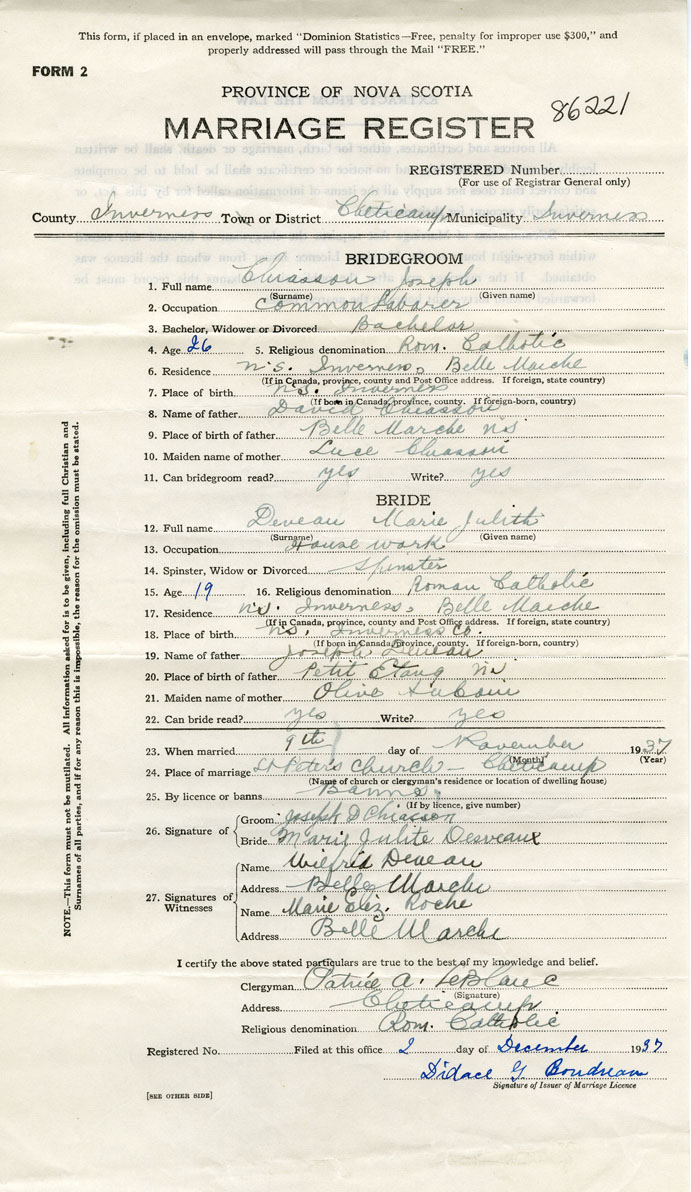 This form, if placed in an envelope, marked "Dominion Statistics—Free, penalty for improper use $300," and
properly addressed will pass through the Mail "FREE."
FORM 2
PROVINCE OF NOVA SCOTIA
86221
MARRIAGE REGISTER
REGISTERED Number
(For use of Registrar General only)
County Inverness Town or District Cheticamp Municipality Inverness
BRIDEGROOM
1. Full name Chiasson Joseph
(Surname) (Given name)
2. Occupation Common Labarer
3. Bachelor, Widower or Divorced Bachelor
4. Age 26 5. Religious denomination Rom. Catholic
6. Residence N.S. Inverness, Belle Marche
(If in Canada, province, county and Post Office address. If foreign, state country)
7. Place of birth N.S. Inverness
(If born in Canada, province, county. If foreign-born, country)
8. Name of father David Chiasson
9. Place of birth of father Belle Marche NS
10. Maiden name of mother Luce Chiasson
11. Can bridegroom read? yes Write? yes
BRIDE
12. Full name Deveau Marie Julith
(Surname) (Given name)
13. Occupation House work
14. Spinster, Widow or Divorced Spinster
15. Age 19 16. Religious denomination Roman Catholic
17. Residence N.S. Inverness, Belle Marche
(If in Canada, province, county and Post Office address. If foreign, state country)
18. Place of birth N.S. Inverness Co.
(If born in Canada, province, county. If foreign-born, country)
19. Name of father Joseph Deveau
20. Place of birth of father Petit Etang NS
21. Maiden name of mother Olive
22. Can bride read? yes Write? yes
23. When married 9th day of November 1937
(Month) (Year)
24. Place of marriage St Peter's Church - Cheticamp
(Name of church or clergyman's residence or location of dwelling house)
25. By licence or banns Banns.
(If by licence, give number)
26. Signature of
Groom Joseph D Chiasson
Bride Marie Julite Desveaux
27. Signatures of Witnesses
Name Wilfrid Deveau
Address Belle Marche
Name Marie Eliz. Roche
Address Belle Marche
I certify the above stated particulars are true to the best of my knowledge and belief.
Clergyman Patrice A. LeBlanc
(Signature)
Address Cheticamp
Religious denomination Rom. Catholic
Registered No. Filed at this office 2 day of December 1937
Didace G Boudreau
Signature of Issuer of Marriage Licence
[SEE OTHER SIDE]
NOTE.—This form must not be mutilated. All information asked for is to be given, including full Christian and
Surnames of all parties, and if for any reason this is impossible, the reason for the omission must be stated.